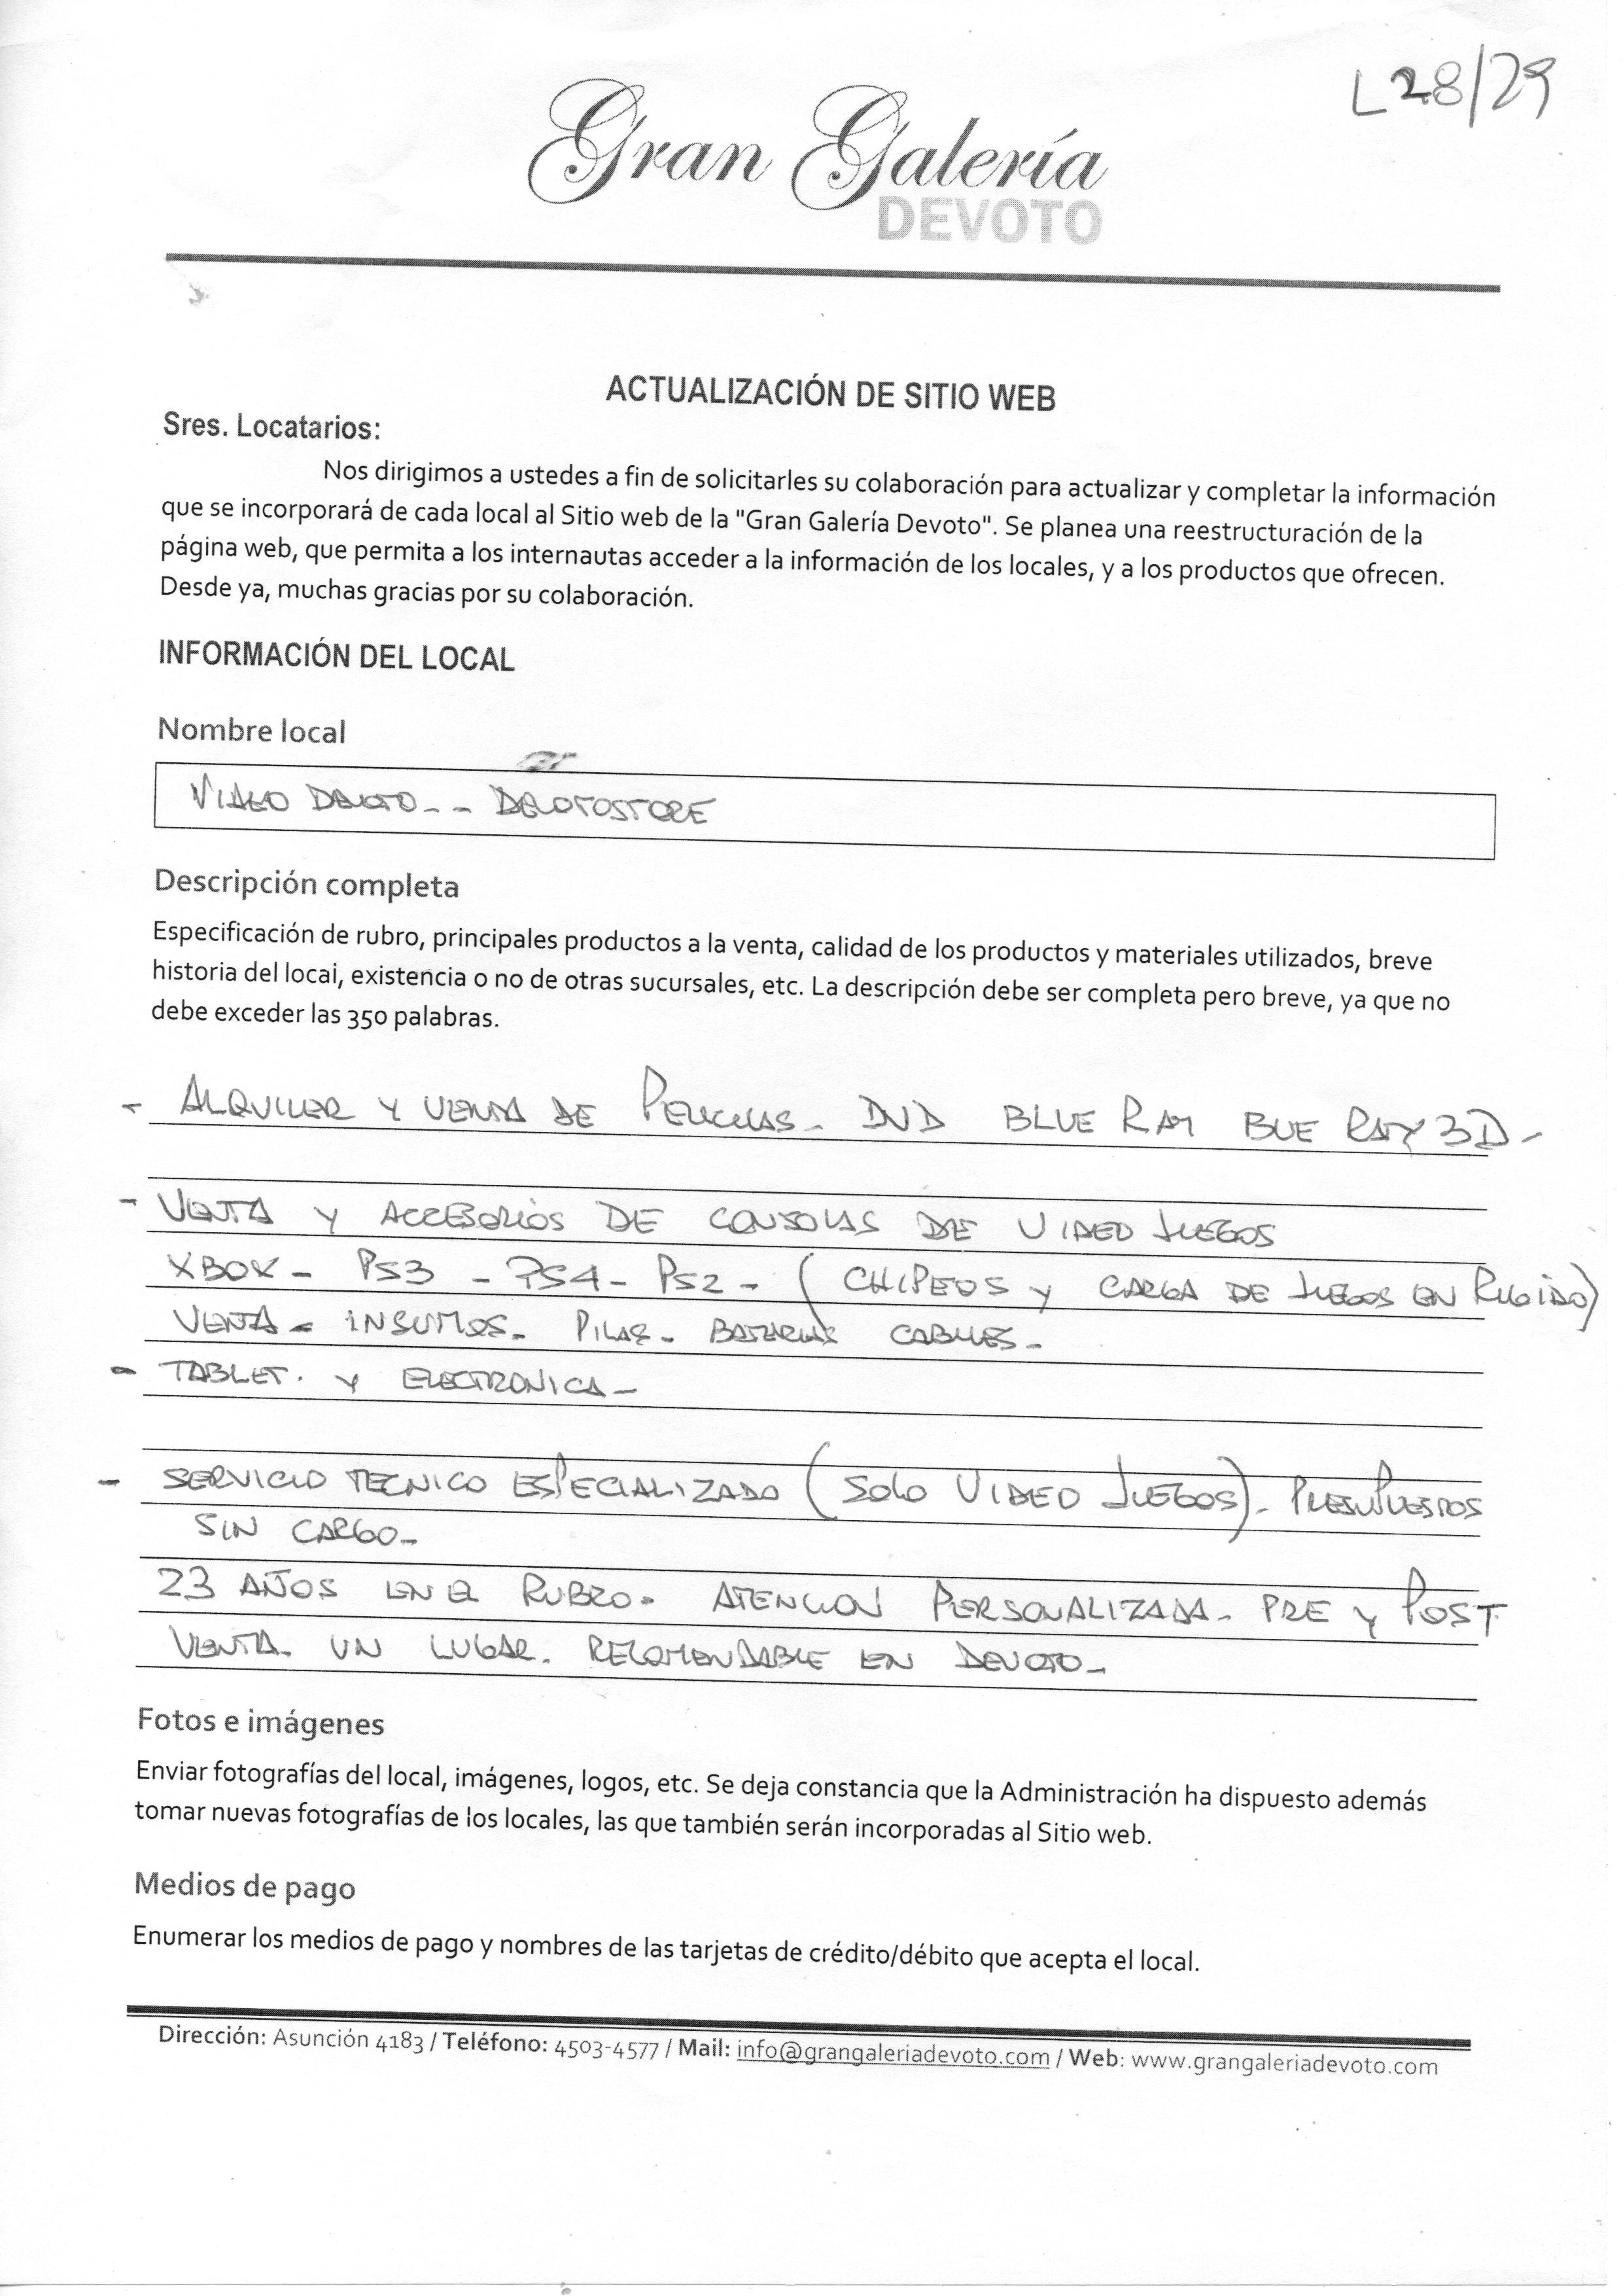 L 28/29
Gran Galería
DEVOTO
ACTUALIZACIÓN DE SITIO WEB
Sres. Locatarios:
Nos dirigimos a ustedes a fin de solicitarles su colaboración para actualizar y completar la información
que se incorporará de cada local al Sitio web de la "Gran Galería Devoto". Se planea una reestructuración de la
página web, que permita a los internautas acceder a la información de los locales, y a los productos que ofrecen.
Desde ya, muchas gracias por su colaboración.
INFORMACIÓN DEL LOCAL
Nombre local
VIDEO DEVOTO - - DEVOTOSTORE
Descripción completa
Especificación de rubro, principales productos a la venta, calidad de los productos y materiales utilizados, breve
historia del local, existencia o no de otras sucursales, etc. La descripción debe ser completa pero breve, ya que no
debe exceder las 350 palabras.
- ALQUILER Y VENTA DE PELICULAS - DVD BLUE RAY BUE RAY 3D -
- VENTA Y ACCESORIOS DE CONSOLAS DE VIDEO JUEGOS
XBOX - PS3 - PS4 - PS2 - ( CHIPEOS y CARGA DE JUEGOS EN RIGIDO)
VENTA - INSUMOS - PILAS - BATERIAS CABLES -
- TABLET. Y ELECTRONICA -
- SERVICIO TECNICO ESPECIALIZADO ( SOLO VIDEO JUEGOS) - PRESUPUESTOS
SIN CARGO -
23 AÑOS EN EL RUBRO. ATENCION PERSONALIZADA - PRE y POST
VENTA - UN LUGAR. RECOMENDABLE EN DEVOTO -
Fotos e imágenes
Enviar fotografías del local, imágenes, logos, etc. Se deja constancia que la Administración ha dispuesto además
tomar nuevas fotografías de los locales, las que también serán incorporadas al Sitio web.
Medios de pago
Enumerar los medios de pago y nombres de las tarjetas de crédito/débito que acepta el local.
Dirección: Asunción 4183 / Teléfono: 4503-4577 / Mail: info@grangaleriadevoto.com / Web: www.grangaleriadevoto.com